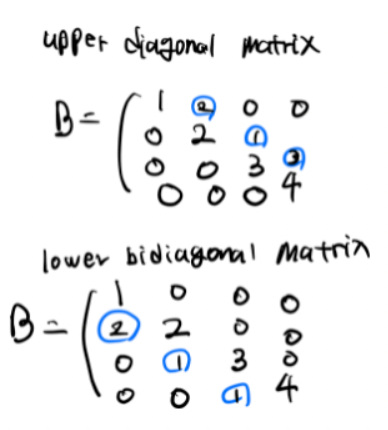 upper diagonal matrix
B = ( 1 2 0 0
0 2 1 0
0 0 3 3
0 0 0 4
lower bidiagonal Matrix
B = ( 1 0 0 0
2 2 0 0
0 1 3 0
0 0 1 4